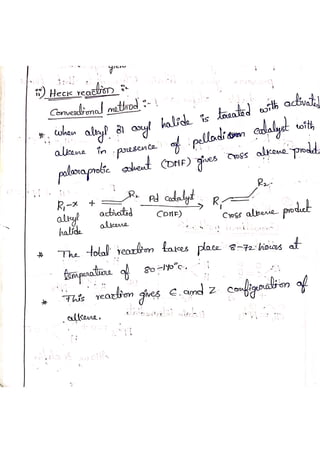 ii) Heck reaction :-
Conventional method :-
* When alkyl or aryl halide is treated with activated
alkene in presence of palladium catalyst with
polar aprotic solvent (DMF) gives cross alkene product
R1-x + R2 Pd catalyst R1 R2
alkyl halide activated alkene (DMF) Cross alkene product
* The total reaction takes place 8-72 hours at
temperature of 80-140°c.
* This reaction gives E and Z configuration of
alkene.